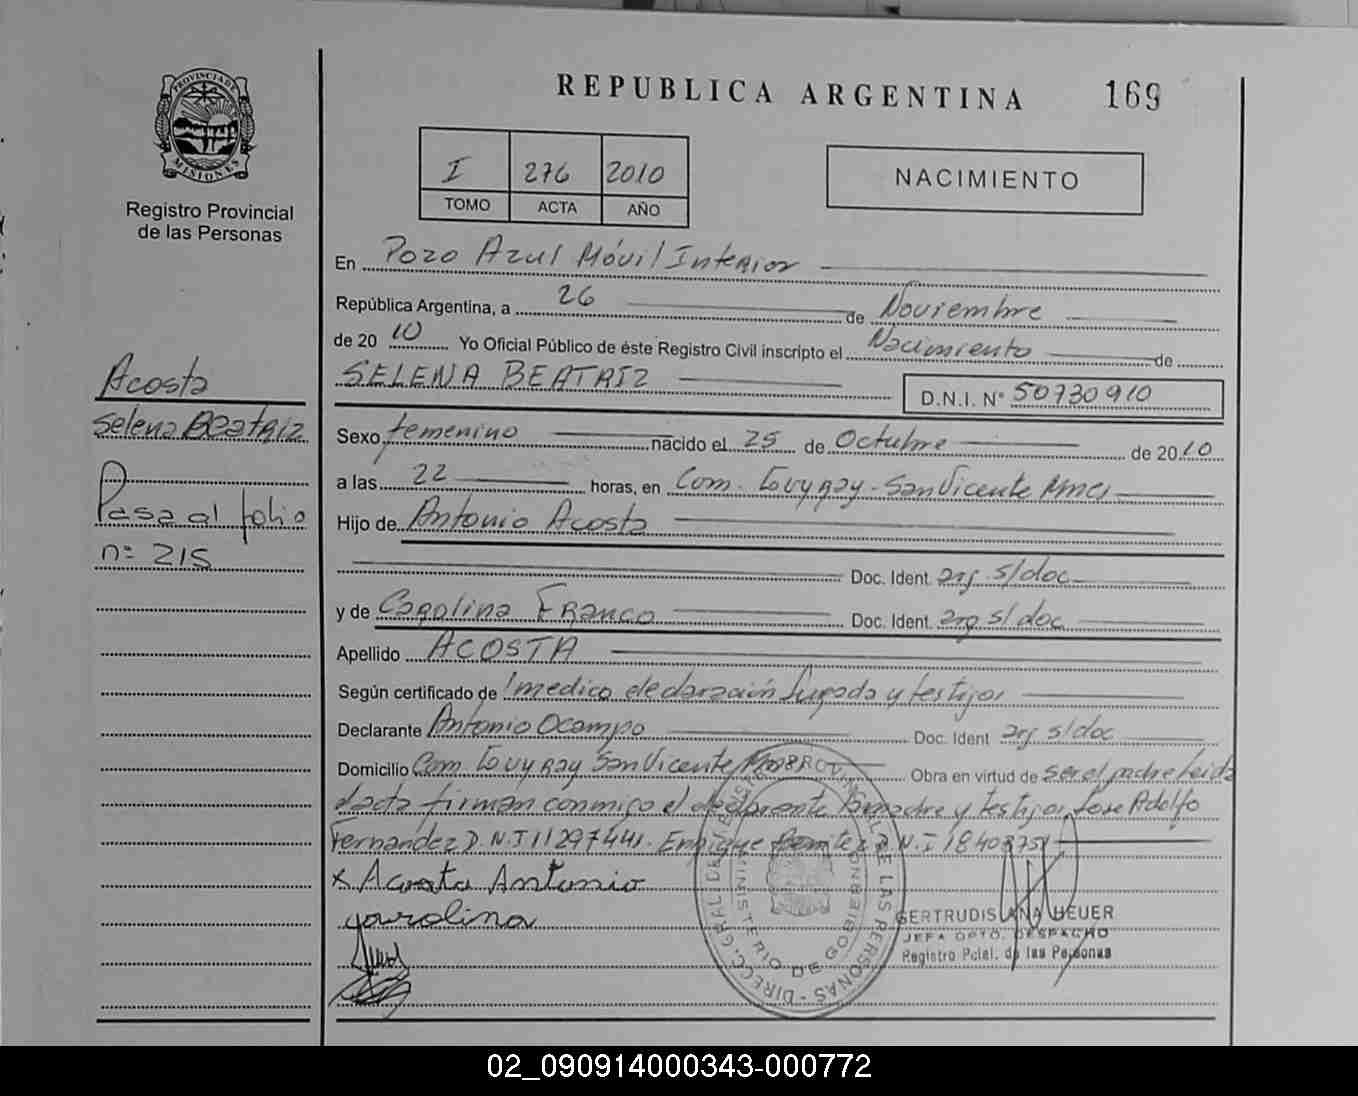 REPUBLICA ARGENTINA 169
PROVINCIA DE MISIONES
Registro Provincial
de las Personas
I 276 2010
TOMO ACTA AÑO
NACIMIENTO
En Pozo Azul Móvil Interior
República Argentina, a 26 de Noviembre
de 2010 Yo Oficial Público de éste Registro Civil inscripto el Nacimiento de
SELENA BEATRIZ D.N.I. N° 50730910
Acosta
Selena Beatriz
Pasa al folio
n= 215
Sexo femenino nacido el 25 de Octubre de 2010
a las 22 horas, en Com. San Vicente Mnes
Hijo de Antonio Acosta
Doc. Ident. arg s/doc
y de Carolina Franco Doc. Ident. arg s/doc
Apellido ACOSTA
Según certificado de medico declarazaión Jurada y testijos
Declarante Antonio Ocampo Doc. Ident arg s/doc
Domicilio Com. San Vicente Obra en virtud de ser el padre Leida
dacta firman conmigo el declarente la madre y testijos Jose Adolfo
Fernandez D.N.I 11297441. Enrique D.N.I 18408751
x Acosta Antonio
Carolina
DIRECC. GRAL DEL REGISTRO PROVINCIAL DE LAS PERSONAS
MINISTERIO DE GOBIERNO
GERTRUDIS ANA HEUER
JEFA DPTO. DESPACHO
Registro Pcial. de las Personas
02_090914000343-000772